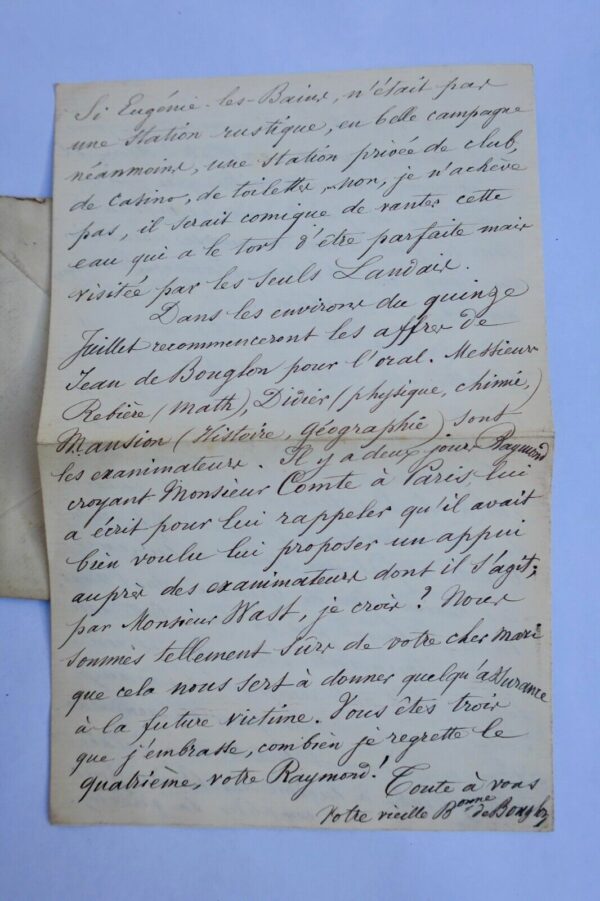 Si Eugénie-les-Bains, n'était pas
une station rustique, en belle campagne
néanmoins, une station privée de club,
de Casino, de toilettes, non, je n'achève
pas, il serait comique de vanter cette
eau qui a le tort d'être parfaite mais
visitée par les seuls Landais.
Dans les environs du quinze
Juillet recommenceront les affres de
Jean de Bouglon pour l'oral. Messieurs
Rebière (math), Didier (physique, chimie,)
Mansion (Histoire, géographie) sont
les examinateurs. Il y a deux jours Raymond
croyant Monsieur Comte à Paris lui
a écrit pour lui rappeler qu'il avait
bien voulu lui proposer un appui
auprès des examinateurs dont il s'agit;
par Monsieur Wast, je crois? Nous
sommes tellement sûrs de votre cher mari
que cela nous sert à donner quelqu'assurance
à la future victime. Vous êtes trois
que j'embrasse, combien je regrette le
quatrième, votre Raymond!
Toute à vous
Votre vieille Bonne de Bouglon